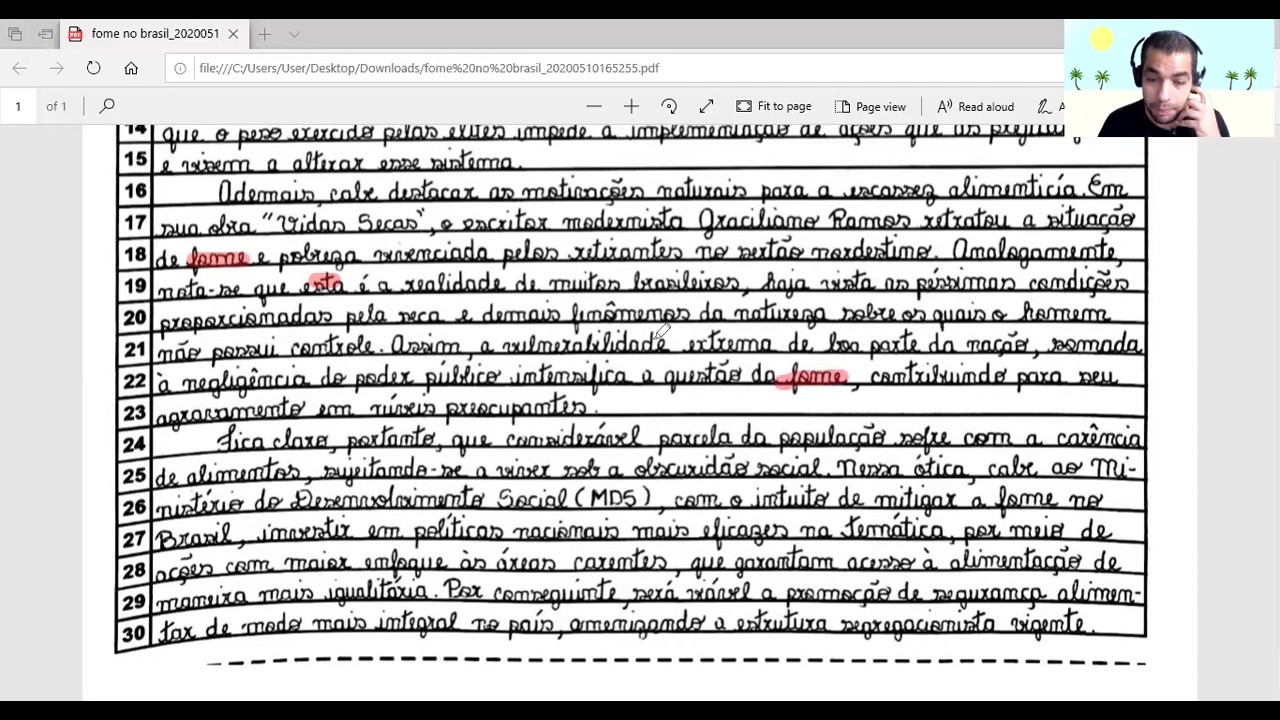 fome no brasil_2020051
file:///C:/Users/User/Desktop/Downloads/fome%20no%20brasil_20200510165255.pdf
1 of 1 Fit to page Page view Read aloud
14 que o peso exercido pelas elites impede a implementação de ações que as
15 e visem a alterar esse sistema.
16 Ademais, cabe destacar as motivações naturais para a escassez alimentícia. Em
17 sua obra "Vidas Secas", o escritor modernista Graciliano Ramos retratou a situação
18 de fome e pobreza vivenciada pelos retirantes no sertão nordestino. Analogamente,
19 nota-se que esta é a realidade de muitos brasileiros, haja vista as péssimas condições
20 proporcionadas pela seca e demais finômenos da natureza sobre os quais o homem
21 não possui controle. Assim, a vulnerabilidade extrema de boa parte da nação, somada
22 à negligência do poder público intensifica a questão da fome, contribuindo para seu
23 agravamento em níveis preocupantes.
24 Fica claro, portanto, que considerável parcela da população sofre com a carência
25 de alimentos, sujeitando-se a viver sob a obscuridão social. Nessa ótica, cabe ao Mi-
26 nistério do Desenvolvimento Social (MDS), com o intuito de mitigar a fome no
27 Brasil, investir em políticas nacionais mais eficazes na temática, por meio de
28 ações com maior enfoque às áreas carentes, que garantam acesso à alimentação de
29 maneira mais igualitária. Por conseguinte, será viável a promoção de segurança alimen-
30 tar de modo mais integral no país, amenizando a estrutura segregacionista vigente.